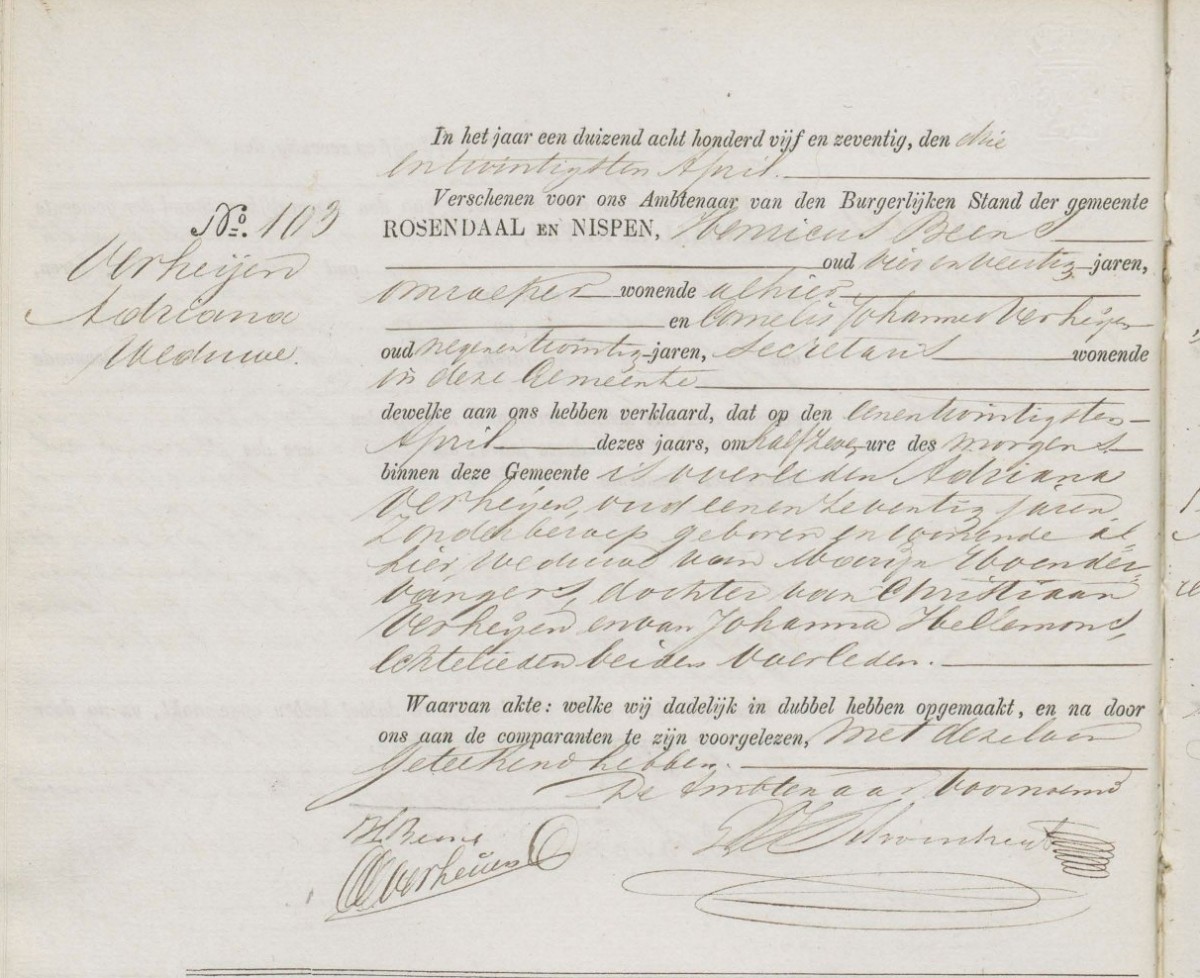 In het jaar een duizend acht honderd vijf en zeventig, den drie
entwintigsten April.
Verschenen voor ons Ambtenaar van den Burgerlijken Stand der gemeente
No. 103
ROSENDAAL EN NISPEN, Henricus Beens
Verheijen
oud vierenveertig jaren,
omroeper wonende alhier
Adriana
en Cornelis Johannes Verheijen
Weduwe.
oud negenentwintig jaren, secretaris wonende
in deze Gemeente
dewelke aan ons hebben verklaard, dat op den eenentwintigsten
April dezes jaars, om half zeven ure des morgens
binnen deze Gemeente is overleden Adriana
Verheijen, oud eenen zeventig jaren,
zonder beroep geboren en wonende al
hier, weduwe van Marijn Woender-
vangers, dochter van Christiaan
Verheijen en van Johanna Hellemons,
echtelieden beiden overleden.
Waarvan akte: welke wij dadelijk in dubbel hebben opgemaakt, en na door
ons aan de comparanten te zijn voorgelezen, met dezelven
geteekend hebben.
De Ambtenaar voornoemd
H Beens
Verheijen